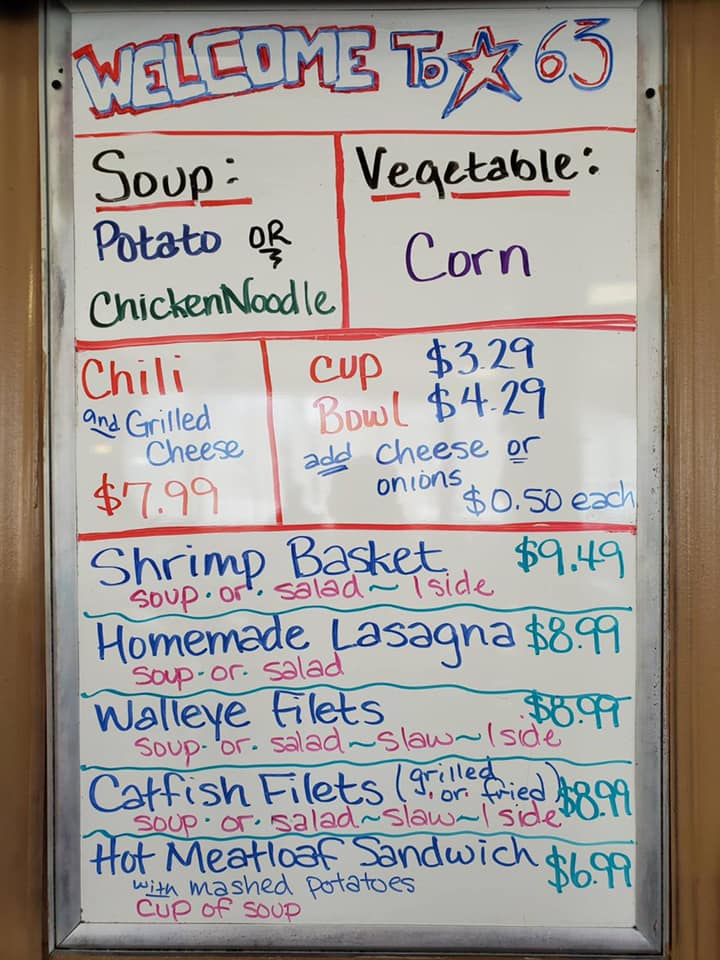 WELCOME To 63
Soup:
Potato OR
Chicken Noodle
Vegetable:
Corn
Chili
and Grilled
Cheese
$7.99
Cup $3.29
Bowl $4.29
add cheese or
onions
$0.50 each
Shrimp Basket $9.49
soup. or. salad~ 1 side
Homemade Lasagna $8.99
soup. or. salad
Walleye Filets $8.99
soup. or. salad~slaw~1 side
Catfish Filets (grilled
. or. fried) $8.99
soup. or. salad~slaw~1 side
Hot Meatloaf Sandwich $6.99
with mashed potatoes
cup of soup